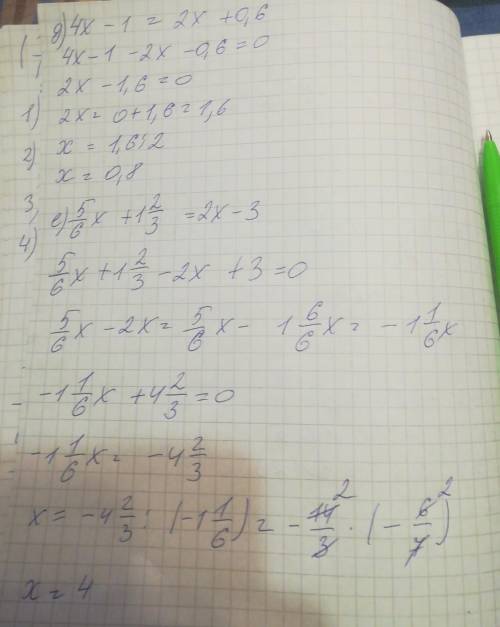 д) 4x - 1 = 2x + 0,6
4x - 1 - 2x - 0,6 = 0
2x - 1,6 = 0
1) 2x = 0 + 1,6 = 1,6
2) x = 1,6 : 2
x = 0,8
3,
4) е) 5/6 x + 1 2/3 = 2x - 3
5/6 x + 1 2/3 - 2x + 3 = 0
5/6 x - 2x = 5/6 x - 1 6/6 x = - 1 1/6 x
- 1 1/6 x + 4 2/3 = 0
- 1 1/6 x = - 4 2/3
x = - 4 2/3 : (- 1 1/6) = - 14/3 2 · (- 6/7) 2
x = 4